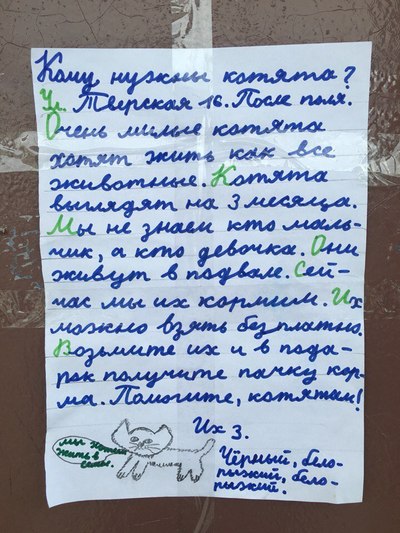 Кому нужны котята?
Ул. Тверская 16. После поля.
Очень милые котята
хотят жить как все
животные. Котята
выглядят на 3 месяца.
Мы не знаем кто маль-
чик, а кто девочка. Они
живут в подвале. Сей-
час мы их кормим. Их
можно взять безплатно.
Возьмите их и в пода-
рок получите пачку кор-
ма. Помогите, котятам!
Их 3.
Чёрный, бело-
рыжий, бело-
рыжий.
мы хотим
жить в
семье.